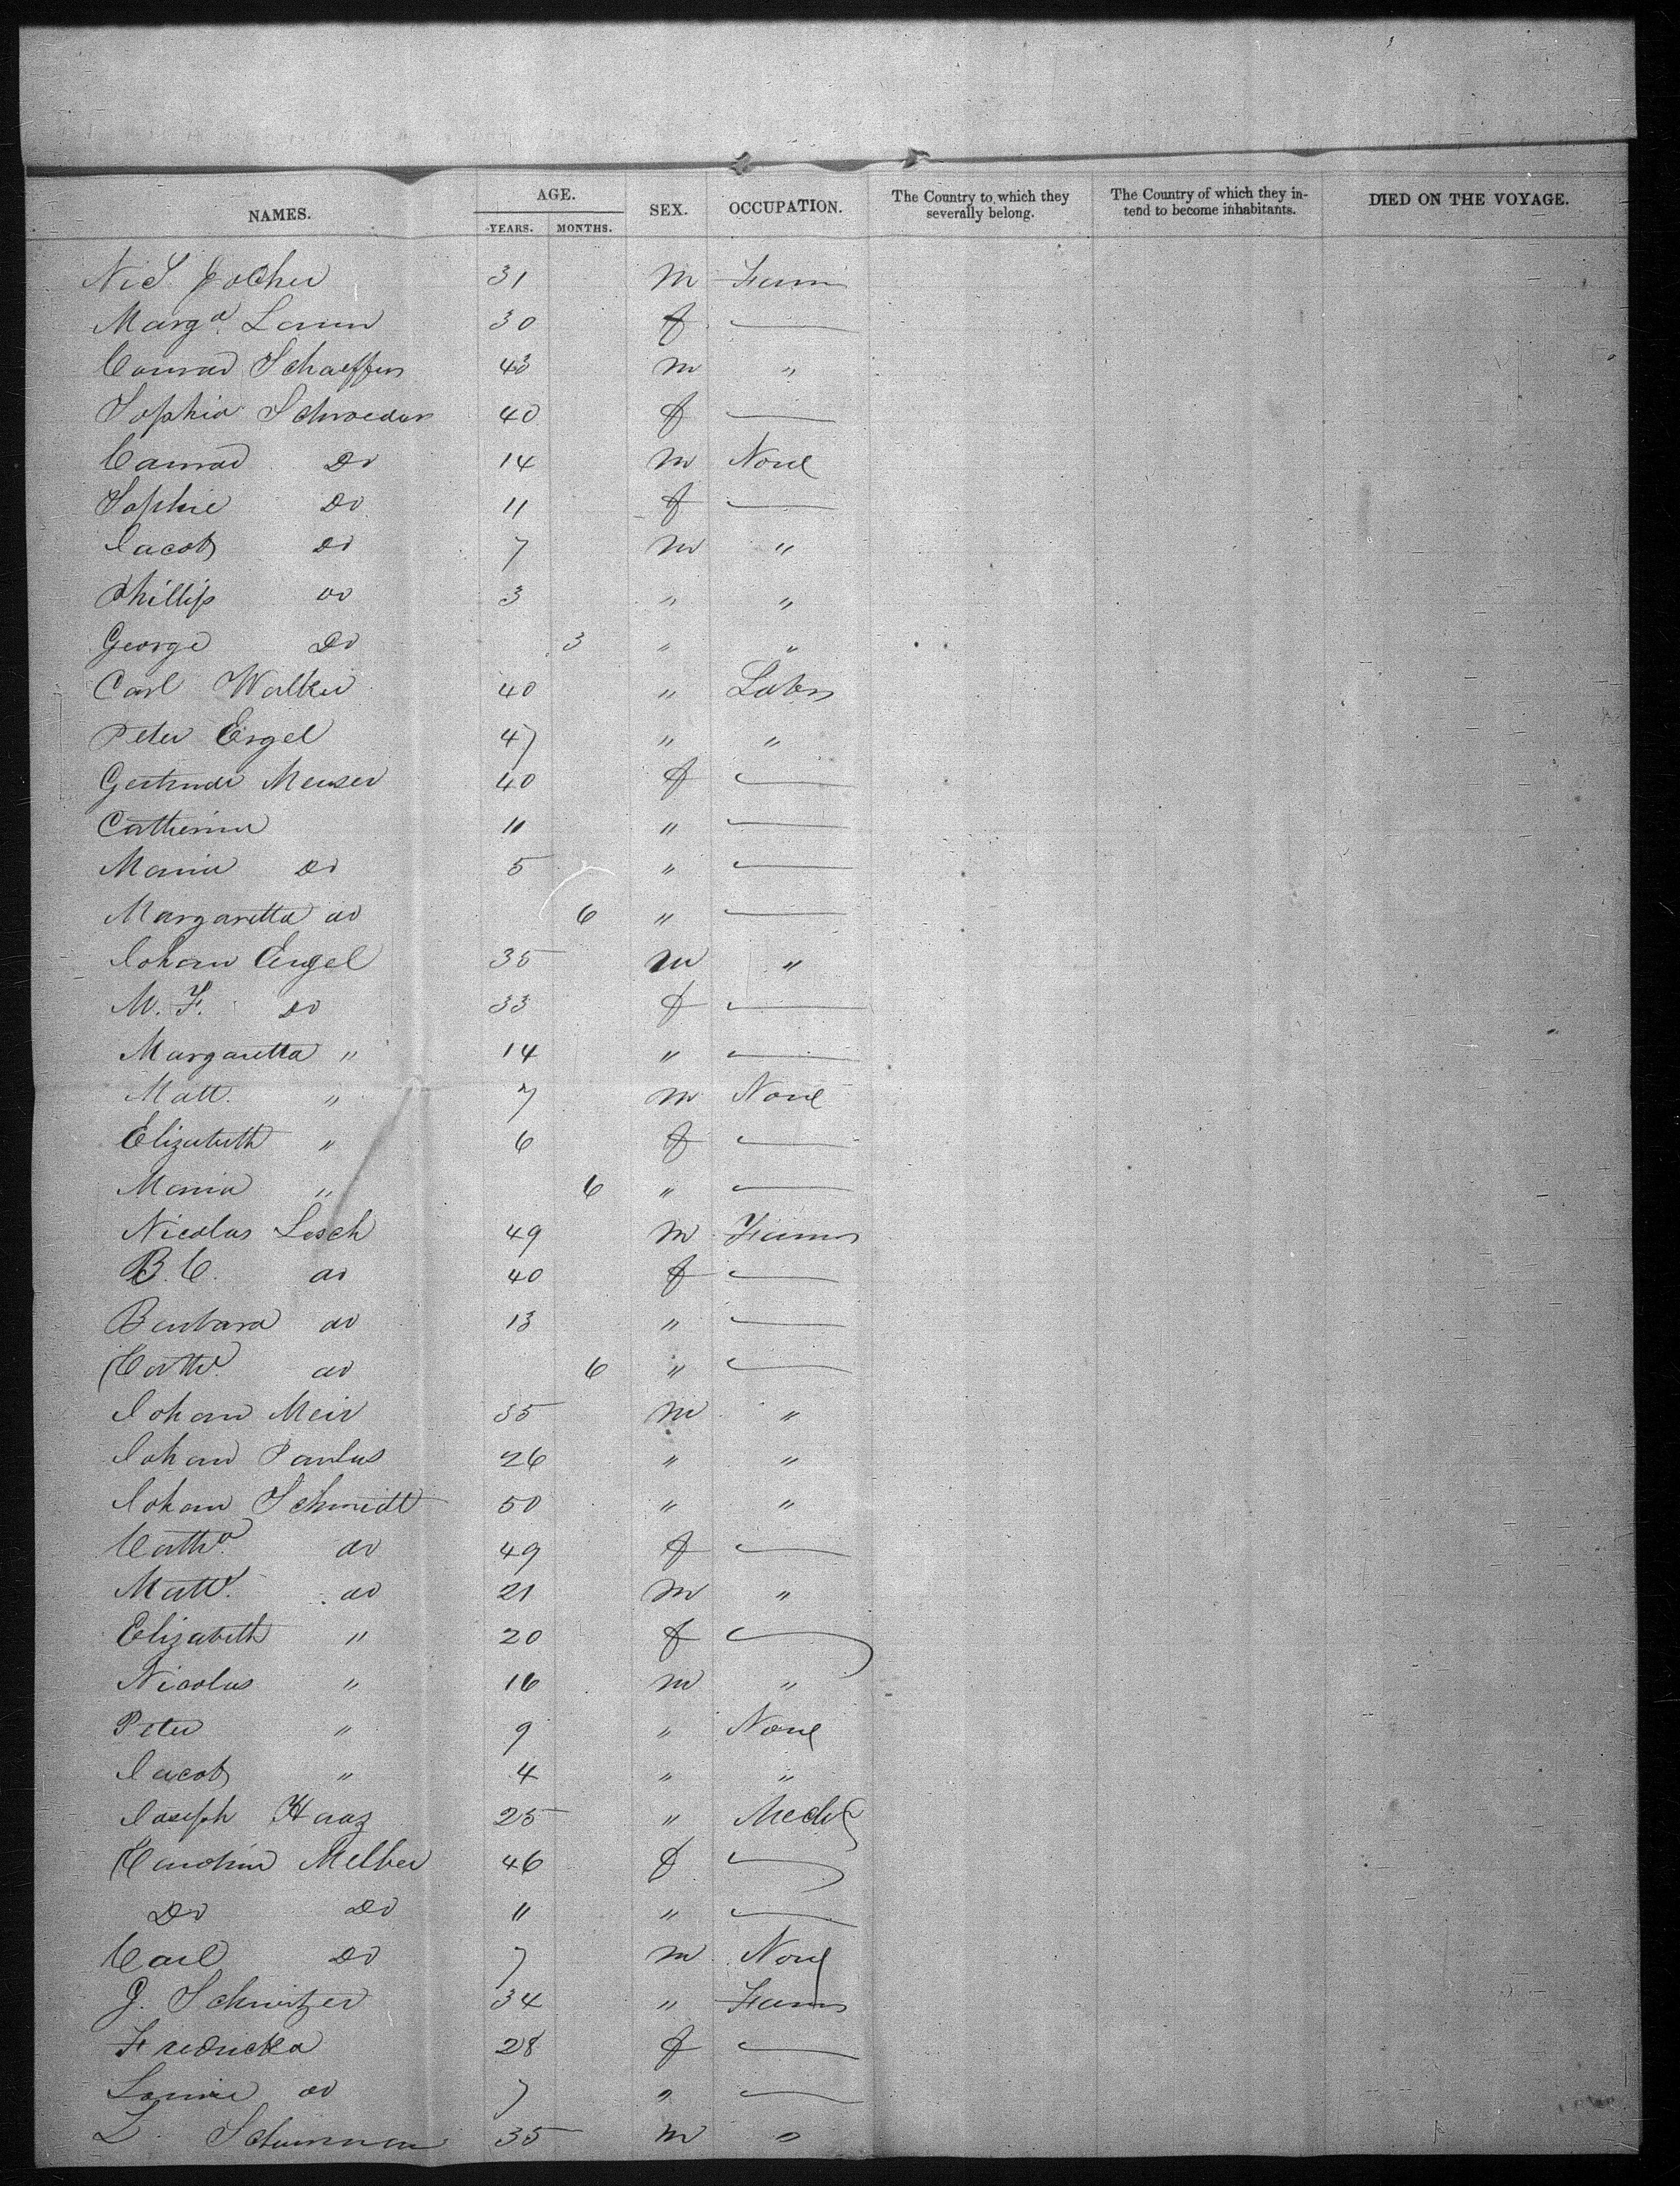 NAMES. AGE. SEX. OCCUPATION. The Country to which they severally belong. The Country of which they intend to become inhabitants. DIED ON THE VOYAGE.
YEARS. MONTHS.
31 m Farm
Marga. 30 f —
Conrad Schaeffer 43 m "
Sophia Schroeder 40 f —
Conrad Do 14 m None
Sophie Do 11 f —
Jacob Do 7 m "
Phillip do 3 " "
George Do 3 " "
Carl Walker 40 " Labr
Peter Engel 47 " "
Gertrude Meuser 40 f —
Catherina 11 " —
Maria Do 5 " —
Margaretta do 6 " —
Johann Engel 35 m "
M. F. Do 33 f —
Margaretta " 14 " —
Matt. " 7 m None
Elizabeth " 6 f —
Maria " 6 " —
Nicolas Losch 49 m Farmr
B. C. do 40 f —
Barbara do 13 " —
Cath. do 6 " —
Johann Meir 35 m "
Johann Paulus 26 " "
Johann Schmidt 50 " "
Catha. do 49 f —
Matt. do 21 m "
Elizabeth " 20 f —
Nicolus " 16 m "
Peter " 9 " None
Jacob " 4 " "
Joseph Haaz 25 " Mech
Carolina Melber 46 f —
Do Do 11 " —
Carl Do 7 m None
J. Schnitzer 34 " Farmr
Fredricka 28 f —
Louise do 7 " —
35 m "